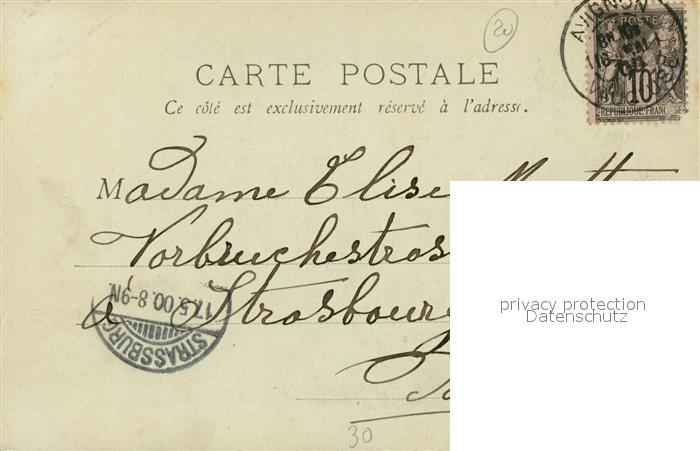 20
AVIGNON
POSTES
10
REPUBLIQUE FRANC
CARTE POSTALE
Ce côté est exclusivement réservé à l'adresse.
Madame Elise
Vorbruchestras
à Strasbourg
STRASSBURG
17.5.00.8-9N.
30
privacy protection
Datenschutz